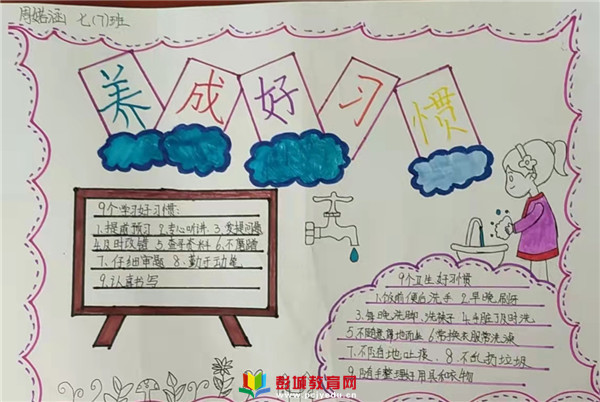 周婼涵 七(7)班
养成好习惯
9个学习好习惯:
1.提前预习 2.专心听讲 3.发提问题
4.及时改错 5.查寻资料 6.不磨蹭
7.仔细审题 8.勤于动笔
9.认真书写
9个卫生好习惯
1.饭前便后洗手 2.早晚刷牙
3.每晚洗脚、洗袜子 4.手脏了及时洗
5.不随意席地而坐 6.常换衣服常洗澡
7.不随地吐痰、8.不乱扔垃圾
9.随手整理好用具和衣物
彭城教育网
www.pcjyedu.cn